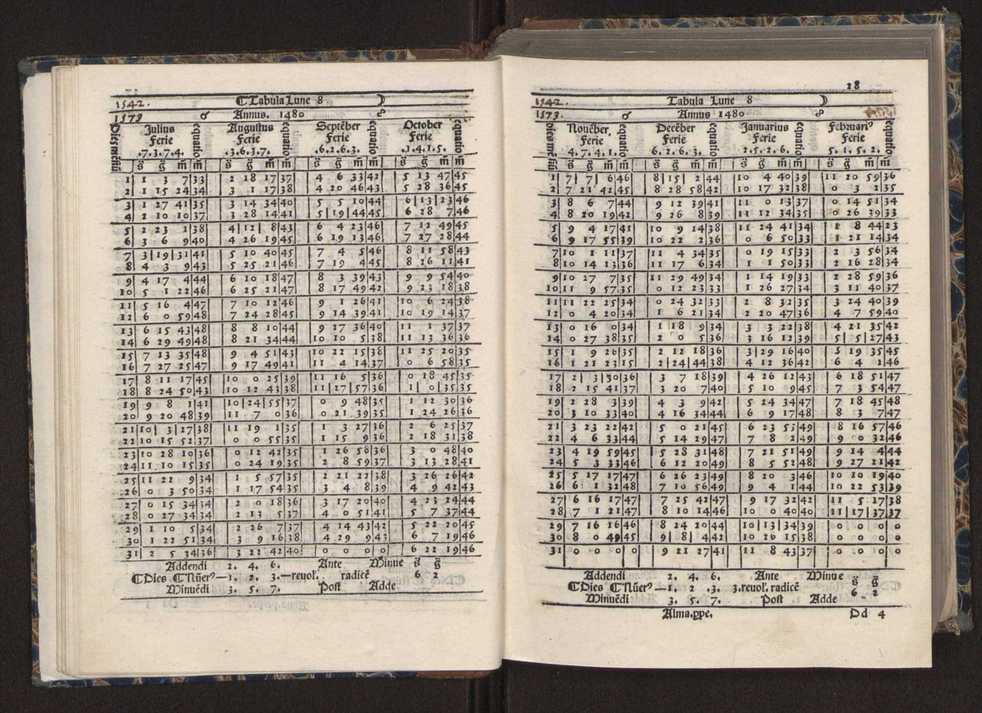 1542.
☾ Tabula Lune 8 ☽
1573 ♂ Annus. 1480 ☍
Julius Augustus Septẽber October
Ferie Ferie Ferie Ferie
.7.3.7.4. .3.6.3.7. .6.2.6.3. .1.4.1.5.
s̃ g̃ m̃ m̃ s̃ g̃ m̃ m̃ s̃ g̃ m̃ m̃ s̃ g̃ m̃ m̃
1 1 3 7 33 2 18 17 37 4 6 33 42 5 13 47 45
2 1 15 24 34 3 1 17 38 4 20 46 43 5 28 36 45
3 1 27 41 35 3 14 34 40 5 5 10 44 6 13 23 46
4 2 10 10 37 3 28 14 41 5 19 44 45 6 28 7 46
5 2 23 1 38 4 12 8 43 6 4 23 46 7 12 49 45
6 3 6 9 40 4 26 19 45 6 19 13 46 7 27 28 44
7 3 19 31 41 5 10 40 45 7 4 5 46 8 11 58 43
8 4 3 9 43 5 25 21 46 7 19 4 45 8 26 11 41
9 4 17 4 44 6 10 18 47 8 3 39 43 9 9 54 40
10 5 1 22 46 6 25 21 47 8 17 49 42 9 23 18 38
11 5 16 4 47 7 10 12 46 9 1 26 41 10 6 24 38
12 6 0 59 48 7 24 28 45 9 14 39 41 10 19 14 37
13 6 15 43 48 8 8 10 44 9 27 36 40 11 1 37 37
14 6 29 49 48 8 21 34 44 10 10 5 38 11 13 36 36
15 7 13 35 48 9 4 51 43 10 22 15 38 11 25 20 35
16 7 27 25 47 9 17 49 41 11 4 14 37 0 6 58 35
17 8 11 17 45 10 0 25 39 11 16 5 36 0 18 45 35
18 8 24 50 43 10 12 43 38 11 27 57 36 1 0 35 35
19 9 8 1 41 10 24 55 37 0 9 48 35 1 12 30 36
20 9 20 48 39 11 7 0 36 0 21 39 35 1 24 26 36
21 10 3 17 38 11 19 1 35 1 3 27 36 2 6 25 37
22 10 15 52 37 0 0 55 35 1 15 9 36 2 18 31 38
23 10 28 10 36 0 12 42 35 1 26 58 36 3 0 48 40
24 11 10 15 35 0 24 19 35 2 8 59 37 3 13 28 41
25 11 22 9 34 1 5 57 35 2 21 22 38 3 26 26 42
26 0 3 50 34 1 17 54 35 3 4 8 39 4 9 42 43
27 0 15 34 34 2 0 18 36 3 17 20 40 4 23 24 44
28 0 27 34 34 2 13 5 37 4 0 51 41 5 7 37 44
29 1 10 5 34 2 26 7 37 4 14 43 42 5 22 20 45
30 1 22 51 34 3 9 16 38 4 29 9 43 6 7 19 46
31 2 5 34 36 3 22 42 40 0 0 0 0 6 22 19 46
Addendi 2. 4. 6. Ante Minue s̃ g̃
☾Dies ☾Nũer⁹ —1. 2. 3.—reuol⁹. radicẽ 6 2
Minuẽdi 3. 5. 7. Post Adde
18
1542.
Tabula Lune 8 ☽
1573. ♂ Annus 1480 ☍
Nouẽber. Decẽber Januarius Februari⁹
Ferie Ferie Ferie Ferie
4.7.4.1. 6.2.6.3. 2.5.2.6. 5.1.5.2.
s̃ g̃ m̃ m̃ s̃ g̃ m̃ m̃ s̃ g̃ m̃ m̃ s̃ g̃ m̃ m̃
1 7 7 6 46 8 15 2 44 10 4 40 39 11 20 59 36
2 7 21 42 45 8 28 58 42 10 17 32 38 0 3 2 35
3 8 6 7 44 9 12 39 41 11 0 13 37 0 14 51 34
4 8 20 19 42 9 26 8 39 11 12 34 35 0 26 39 33
5 9 4 17 41 10 9 14 38 11 24 41 34 1 8 44 23
6 9 17 55 39 10 22 2 36 0 6 50 33 1 21 14 34
7 10 1 11 37 11 4 34 35 0 19 15 33 2 3 56 34
8 10 14 13 36 11 17 6 34 1 1 50 33 2 16 28 34
9 10 27 7 35 11 29 49 34 1 14 19 33 2 28 59 36
10 11 9 57 35 0 12 23 33 1 26 27 34 3 11 40 37
11 11 22 25 34 0 24 32 33 2 8 32 35 3 24 40 39
12 0 4 20 34 1 6 21 34 2 20 47 36 4 7 59 40
13 0 16 0 34 1 18 9 34 3 3 22 38 4 21 35 42
14 0 27 38 35 2 0 5 36 3 16 12 39 5 5 27 43
15 1 9 26 35 2 12 18 36 3 29 16 40 5 19 35 45
16 1 21 23 15 2 24 44 38 4 12 36 42 6 4 2 46
17 2 3 30 36 3 7 18 39 4 26 12 43 6 18 51 47
18 2 15 41 37 3 20 7 40 5 10 9 45 7 3 54 47
19 2 28 3 39 4 3 9 42 5 24 34 47 7 18 45 48
20 3 10 33 40 4 16 34 44 6 9 17 48 8 3 7 47
21 3 23 22 42 5 0 21 45 6 23 53 49 8 16 57 46
22 4 6 33 44 5 14 29 47 7 8 2 49 9 0 32 46
23 4 19 59 45 5 28 31 48 7 21 51 49 9 14 4 44
24 5 3 33 46 6 12 20 49 8 5 52 48 9 27 21 42
25 5 17 17 47 6 26 23 49 8 20 3 46 10 10 19 40
26 6 1 21 48 7 10 56 49 9 4 1 44 10 22 53 39
27 6 16 17 47 7 25 42 47 9 17 32 42 11 5 17 38
28 7 1 21 47 8 10 14 46 10 0 40 40 11 17 37 37
29 7 16 16 46 8 24 20 44 10 13 34 39 0 0 0 0
30 8 0 49 45 9 8 4 42 10 26 15 38 0 0 0 0
31 0 0 0 0 9 21 27 41 11 8 43 37 0 0 0 0
Addendi 2. 4. 6. Ante Minue s̃ g̃
☾Dies ☾Nũer⁹ —1. 2 .3. 3.reuol⁹. radicẽ 6 2
Minuẽdi 3. 5. 7. Post Adde
Alma.ppe. Dd 4